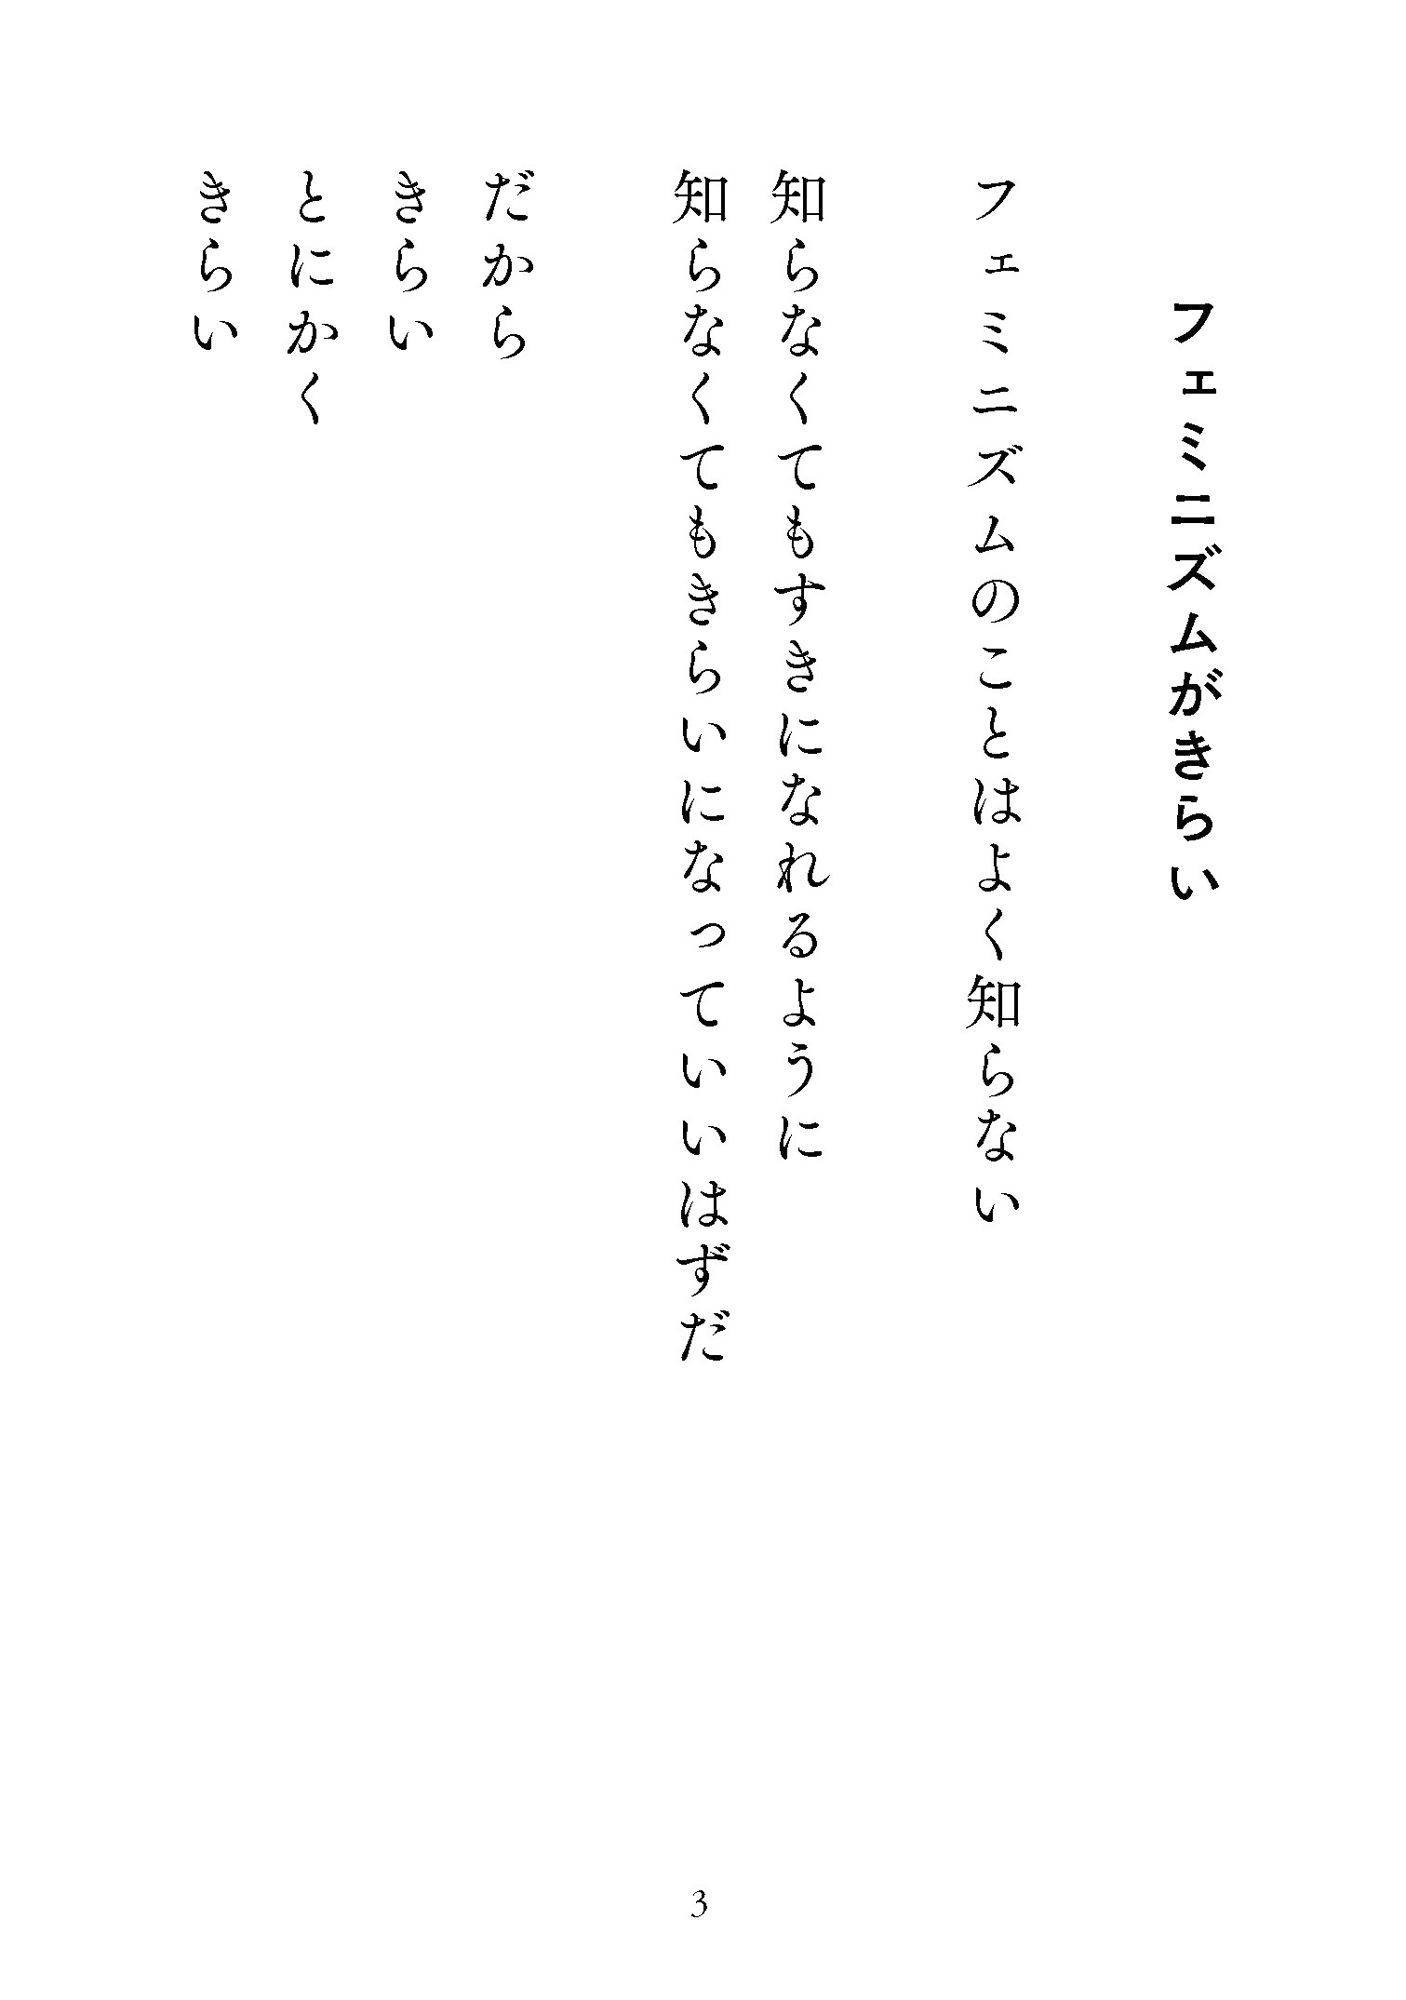 フェミニズムがきらい
フェミニズムのことはよく知らない
知らなくてもすきになれるように
知らなくてもきらいになっていいはずだ
だから
きらい
とにかく
きらい
3